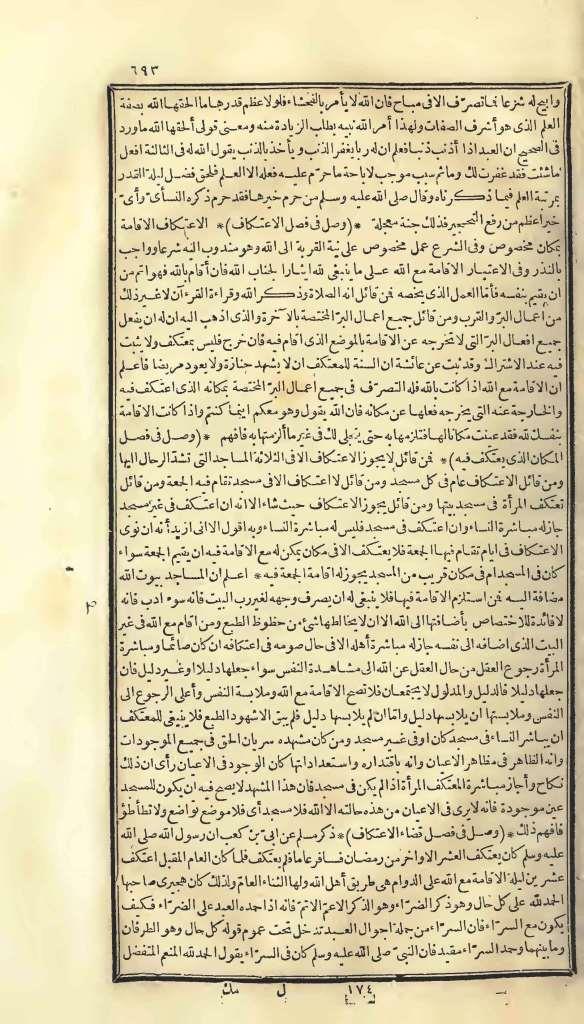 ٦٩٣
وابيح له شرعا فما تصرّف الا فى مباح فان الله لا يأمر بالفحشاء فلولا عظم قدرها ما الحقها الله بصفة
العلم الذى هو أشرف الصفات ولهذا أمر الله نبيه بطلب الزيادة منه ومعنى قولى ألحقها الله ما ورد
فى الصحيح ان العبد اذا أذنب ذنبا فعلم ان له ربا يغفر الذنب ويأخذ بالذنب يقول الله له فى الثالثة افعل
ما شئت فقد غفرت لك وما ثم سبب موجب لاباحة ما حرّم عليه فعله الا العلم فلحق فضل ليلة القدر
بمرتبة العلم فيما ذكرناه وقال صلى الله عليه وسلم من حرم خيرها فقد حرم ذكره النسائى وأى
خير أعظم من رفع التحجير فذلك جنة معجلة * (وصل فى فصل الاعتكاف) * الاعتكاف الاقامة
بمكان مخصوص وفى الشرع عمل مخصوص على نية القربة الى الله وهو مندوب اليه شرعا وواجب
بالنذر وفى الاعتبار الاقامة مع الله على ما ينبغى لله ايثارا لجناب الله فان أقام بالله فهو اتم من
ان يقيم بنفسه فأمّا العمل الذى يخصه فمن قائل انه الصلاة وذكر الله وقراءة القرءآن لا غير ذلك
من أعمال البرّ والقرب ومن قائل جميع اعمال البرّ المختصة بالآخرة والذى اذهب اليه ان له ان يفعل
جميع افعال البرّ التى لا تخرجه عن الاقامة بالموضع الذى اقام فيه فان خرج فليس بمعتكف ولا يثبت
فيه عند الاشتراك وقد ثبت عن عائشة ان السنة للمعتكف ان لا يشهد جنازة ولا يعود مريضا فاعلم
ان الاقامة مع الله اذا كانت بالله فله التصرّف فى جميع اعمال البرّ المختصة بمكانه الذى اعتكف فيه
والخارجة عنه التى يخرجه فعلها عن مكانه فان الله يقول وهو معكم اينما كنتم واذا كانت الاقامة
بنفسك لله فقد عينت مكانا لها فتلزمها به حتى يتجلى لك فى غير ما ألزمتها به فافهم * (وصل فى فصل
المكان الذى يعتكف فيه) * فمن قائل لا يجوز الاعتكاف الا فى الثلاثة المساجد التى تشدّ الرحال اليها
ومن قائل الاعتكاف عام فى كل مسجد ومن قائل لا اعتكاف الا فى مسجد تقام فيه الجمعة ومن قائل
تعتكف المرأة فى مسجد بيتها ومن قائل يجوز الاعتكاف حيث شاء الا انه ان اعتكف فى غير مسجد
جاز له مباشرة النساء وان اعتكف فى مسجد فليس له مباشرة النساء وبه اقول الا انى ازيد أنه ان نوى
الاعتكاف فى ايام تقام فيها الجمعة فلا يعتكف الا فى مكان يمكن له مع الاقامة فيه ان يقيم الجمعة سواء
كان فى المسجد ام فى مكان قريب من المسجد يجوز له اقامة الجمعة فيه * اعلم ان المساجد بيوت الله
مضافة اليه فمن استلزم الاقامة فيها فلا ينبغى له ان يصرف وجهه لغير رب البيت فانه سوء ادب فانه
لا فائدة للاختصاص باضافتها الى الله الا ان لا يخالطها شئ من حظوظ الطبع ومن اقام مع الله فى غير
البيت الذى اضافه الى نفسه جاز له مباشرة أهله الا فى حال صومه فى اعتكافه ان كان صائما ومباشرة
المرأة رجوع العقل من حال العقل عن الله الى مشاهدة النفس سواء جعلها دليلا او غير دليل فان
جعلها دليلا فالدليل والمدلول لا يجتمعان فلا تصح الاقامة مع الله وملابسة النفس وأعلى الرجوع الى
النفس وملابستها ان يلابسها دليل واما ان لم يلابسها دليل فلم يبق الا شهود الطبع فلا ينبغى للمعتكف
ان يباشر النساء فى مسجد كان او فى غير مسجد ومن كان مشهده سريان الحق فى جميع الموجودات
وانه الظاهر فى مظاهر الاعيان وانه باقتداره واستعداداتها كان الوجود فى الاعيان رأى ان ذلك
نكاح وأجاز مباشرة المعتكف المرأة اذ الم يكن فى مسجد فان هذا المشهد لا يصح فيه ان يكون للمسجد
عين موجودة فانه لا يرى فى الاعيان من هذه حالته الا الله فلا مسجد أى فلا موضع تواضع ولا تطأطؤ
فافهم ذلك * (وصل فى فصل قضاء الاعتكاف) * ذكر مسلم عن ابىّ بن كعب ان رسول الله صلى الله
عليه وسلم كان يعتكف العشر الاواخر من رمضان فسافر عاما فلم يعتكف فلما كان العام المقبل اعتكف
عشرين ليلة الاقامة مع الله على الدوام هى طريق أهل الله ولها الثناء العامّ ولذلك كان هجيرى صاحبها
الحمد لله على كل حال وهو ذكر الضرّاء وهو الذكر الاعمّ الاتمّ فانه اذا حمده العبد على الضرّاء فكيف
يكون مع السرّاء فان السرّاء من جملة احوال العبد تدخل تحت عموم قوله كل حال وهو الطرفان
وما بينهما وحمد السرّاء مقيد فان النبىّ صلى الله عليه وسلم كان فى السرّاء يقول الحمد لله المنعم المتفضل
١٧٤ ل مك